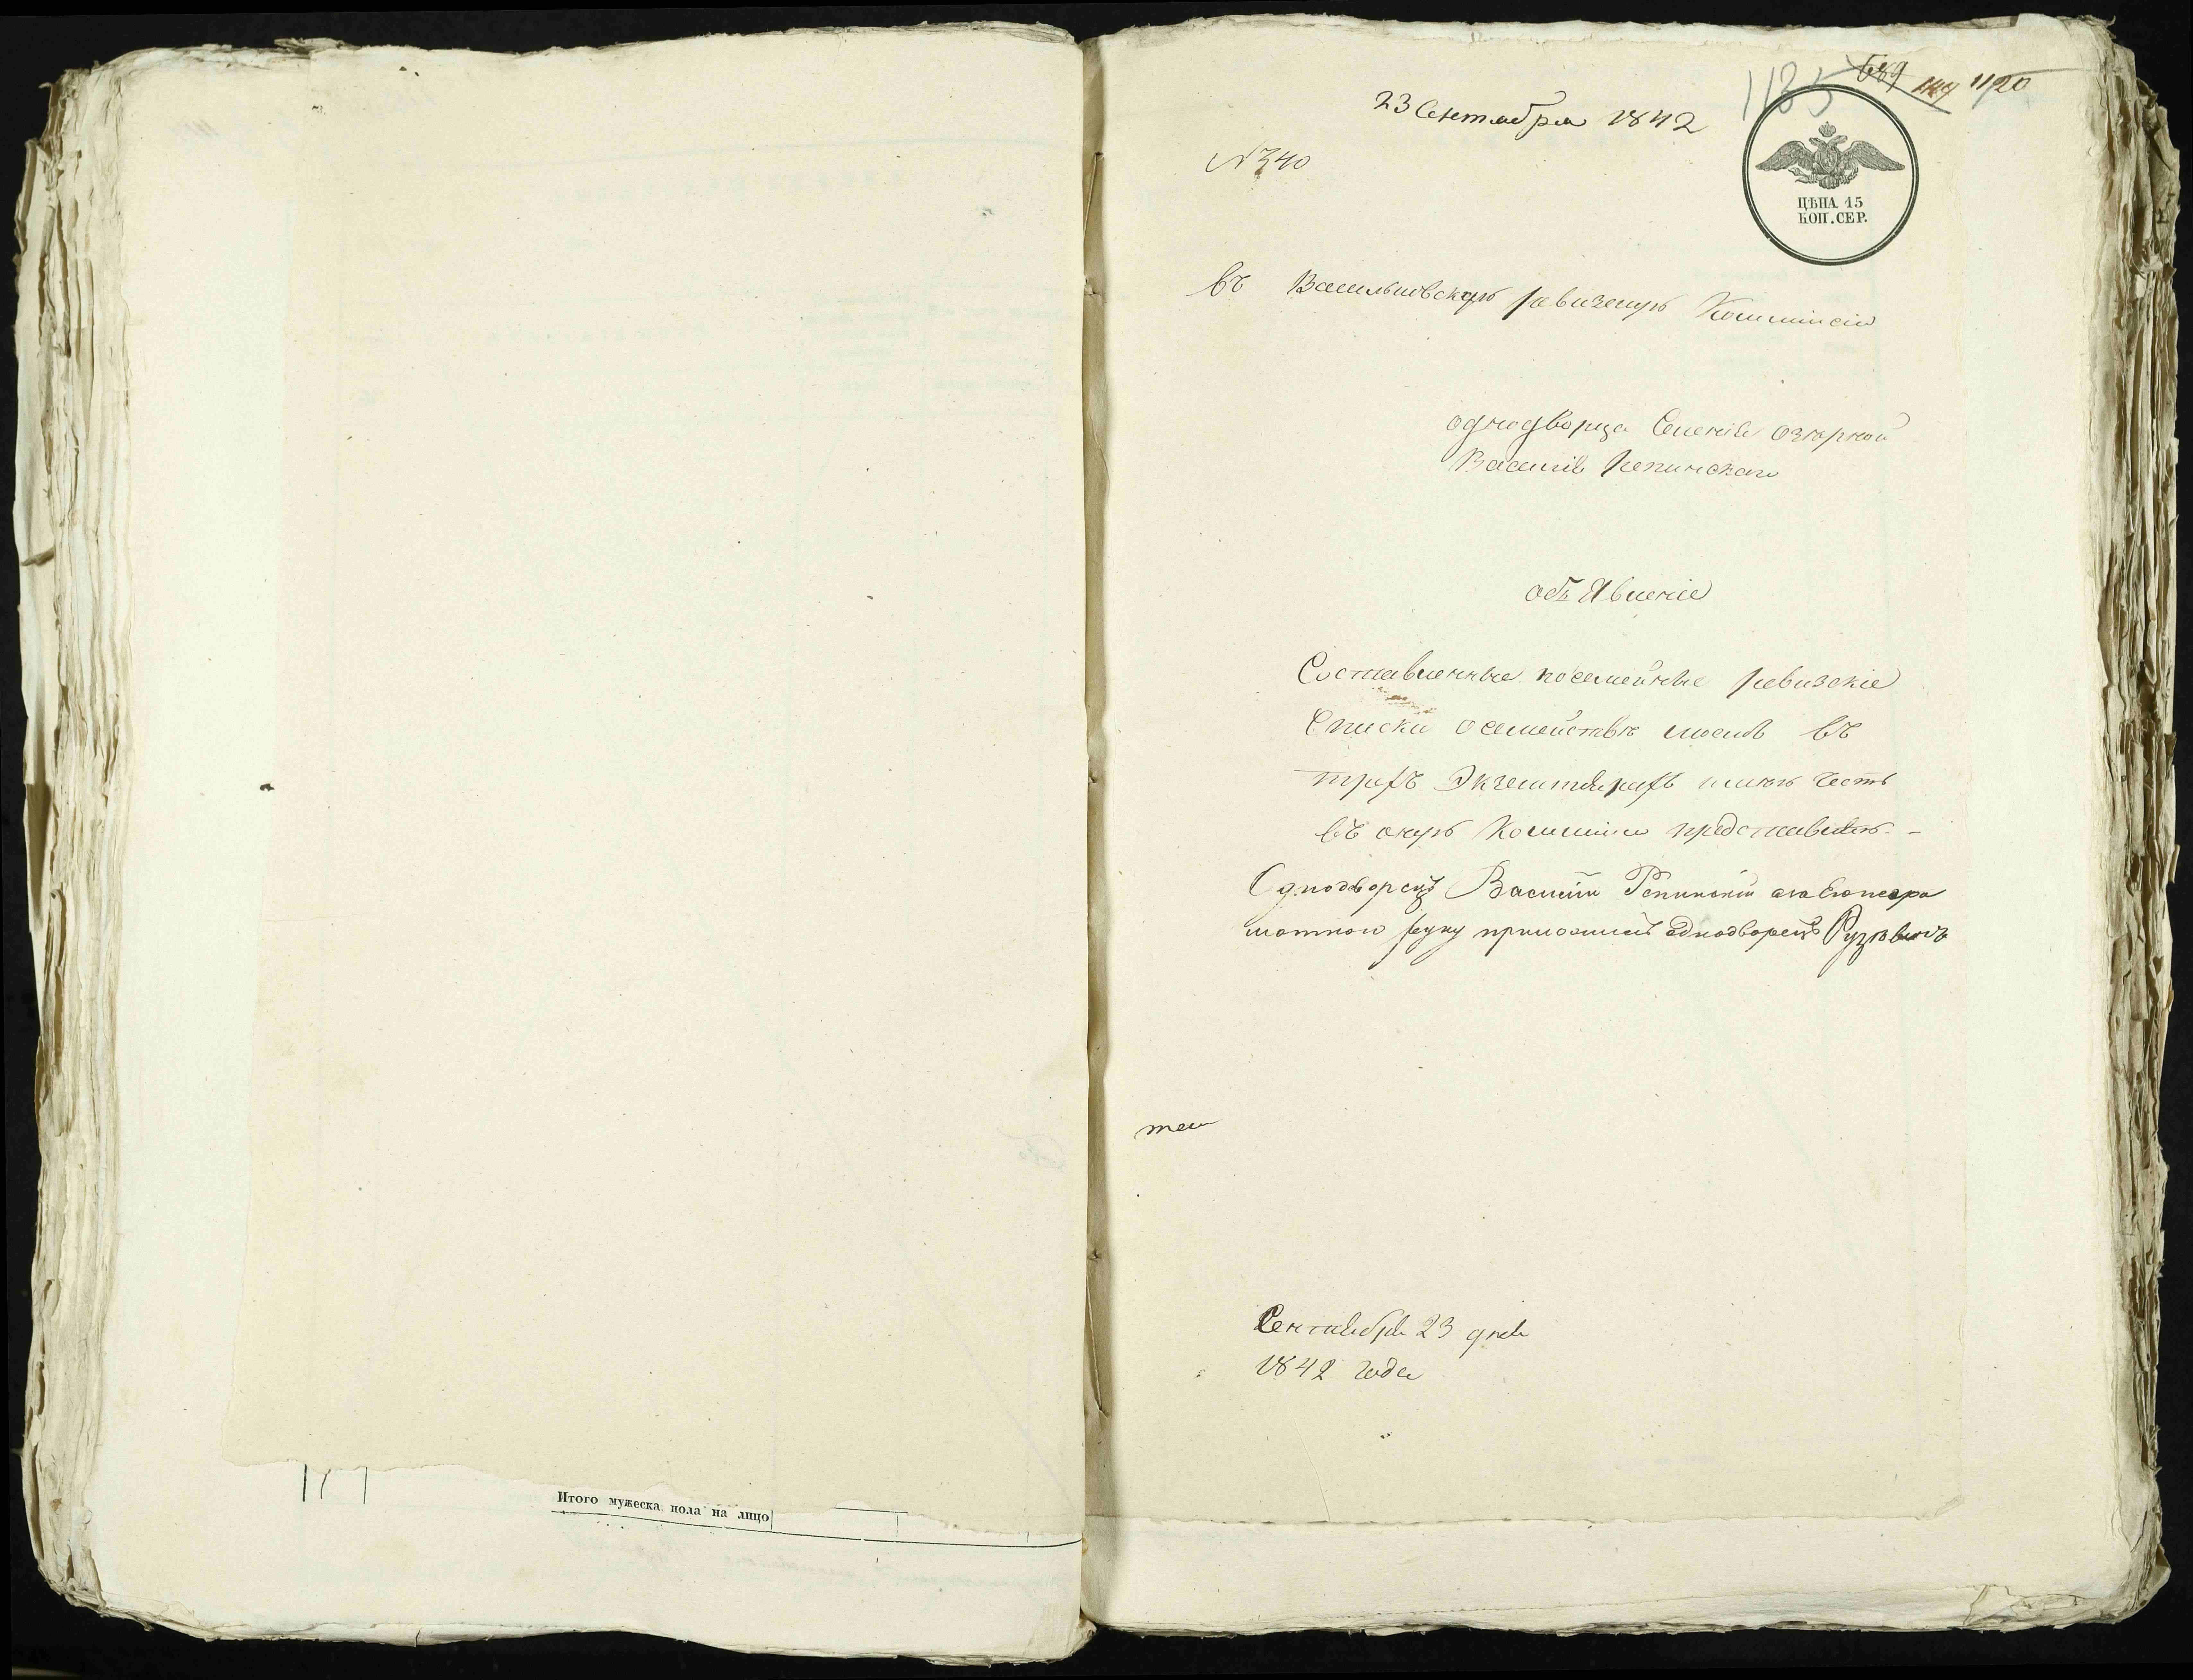 Итого мужеска пола на лицо
1185 689 1119 1120
23 Сентября 1842
№ 340
ЦѢНА 15
КОП. СЕР.
въ Васильковскую ревизкую Коммиссію
однодворца Селенія Озерной
Василія Репинскаго
объ Явленіе
Составленные посемейные ревизкіе
Списки о семействѣ моемъ въ
трехъ Экземплярахъ имѣю честь
въ оную Коммисію представить. -
Однодворецъ Василій Репинскій а за Его негра
мотного руку приложилъ однодворецъ
Сентября 23 дня
1842 года